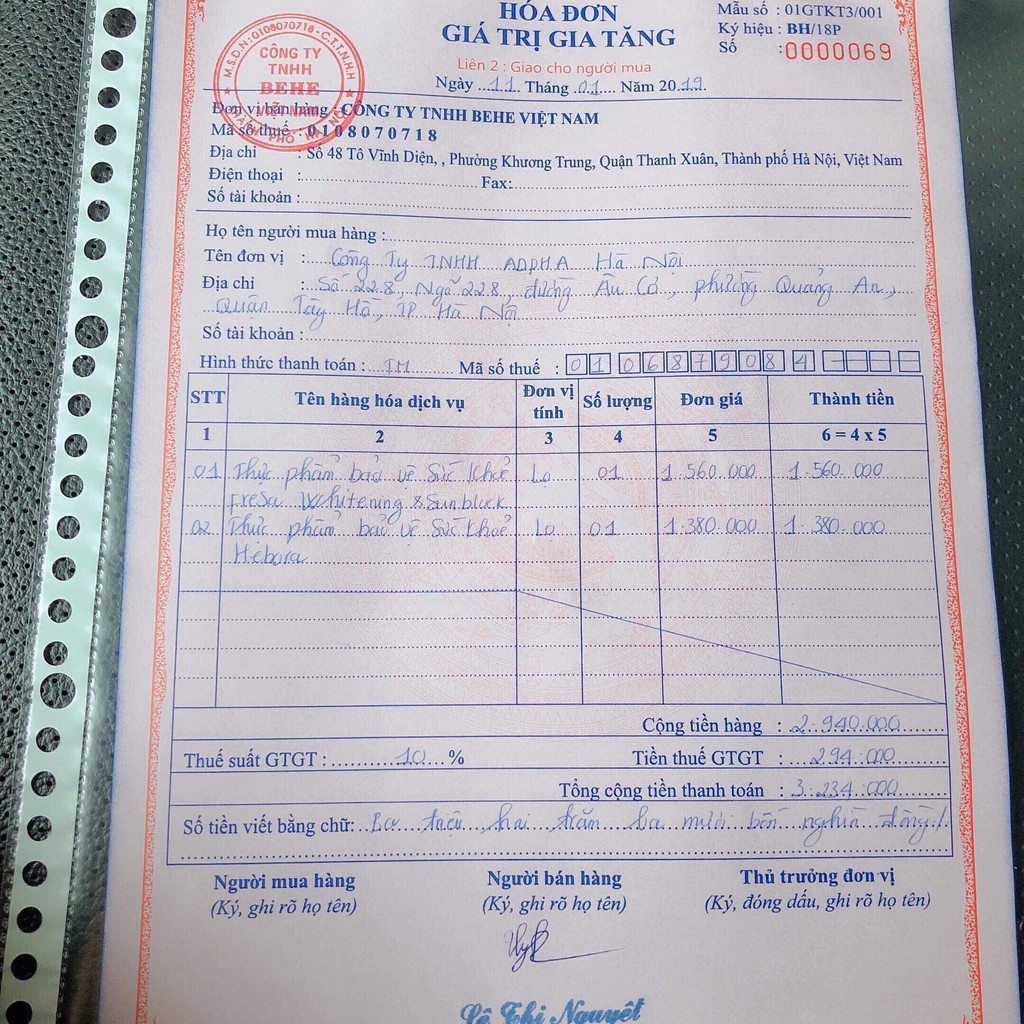 HÓA ĐƠN
GIÁ TRỊ GIA TĂNG
Liên 2 : Giao cho người mua
Ngày ..11.. Tháng .01.... Năm 2019.
Mẫu số : 01GTKT3/001
Ký hiệu : BH/18P
Số : 0000069
M.S.D.N: 0108070718 - C.T.T.N.H.H
CÔNG TY
TNHH
BEHE
VIỆT NAM
Đơn vị bán hàng : CÔNG TY TNHH BEHE VIỆT NAM
Mã số thuế : 0108070718
Địa chỉ : Số 48 Tô Vĩnh Diện, , Phường Khương Trung, Quận Thanh Xuân, Thành phố Hà Nội, Việt Nam
Điện thoại : Fax:
Số tài khoản :
Họ tên người mua hàng :
Tên đơn vị : Công Ty TNHH ADPHA Hà Nội
Địa chỉ : Số 228, Ngõ 228, đường Âu Cơ, phường Quảng An,
Quận Tây Hồ, TP Hà Nội
Số tài khoản :
Hình thức thanh toán : TM Mã số thuế : 0106879084
STT Tên hàng hóa dịch vụ Đơn vị tính Số lượng Đơn giá Thành tiền
1 2 3 4 5 6 = 4 x 5
01 Thực phẩm bảo vệ Sức khoẻ Lọ 01 1.560.000 1.560.000
Fresa Whitening & Sunblock
02 Thực phẩm bảo vệ Sức khoẻ Lọ 01 1.380.000 1.380.000
Hebora
Cộng tiền hàng : 2.940.000
Thuế suất GTGT : 10 % Tiền thuế GTGT : 294.000
Tổng cộng tiền thanh toán : 3.234.000
Số tiền viết bằng chữ: Ba triệu hai trăm ba mươi bốn nghìn đồng./.
Người mua hàng Người bán hàng Thủ trưởng đơn vị
(Ký, ghi rõ họ tên) (Ký, ghi rõ họ tên) (Ký, đóng dấu, ghi rõ họ tên)
Lê Thị Nguyệt